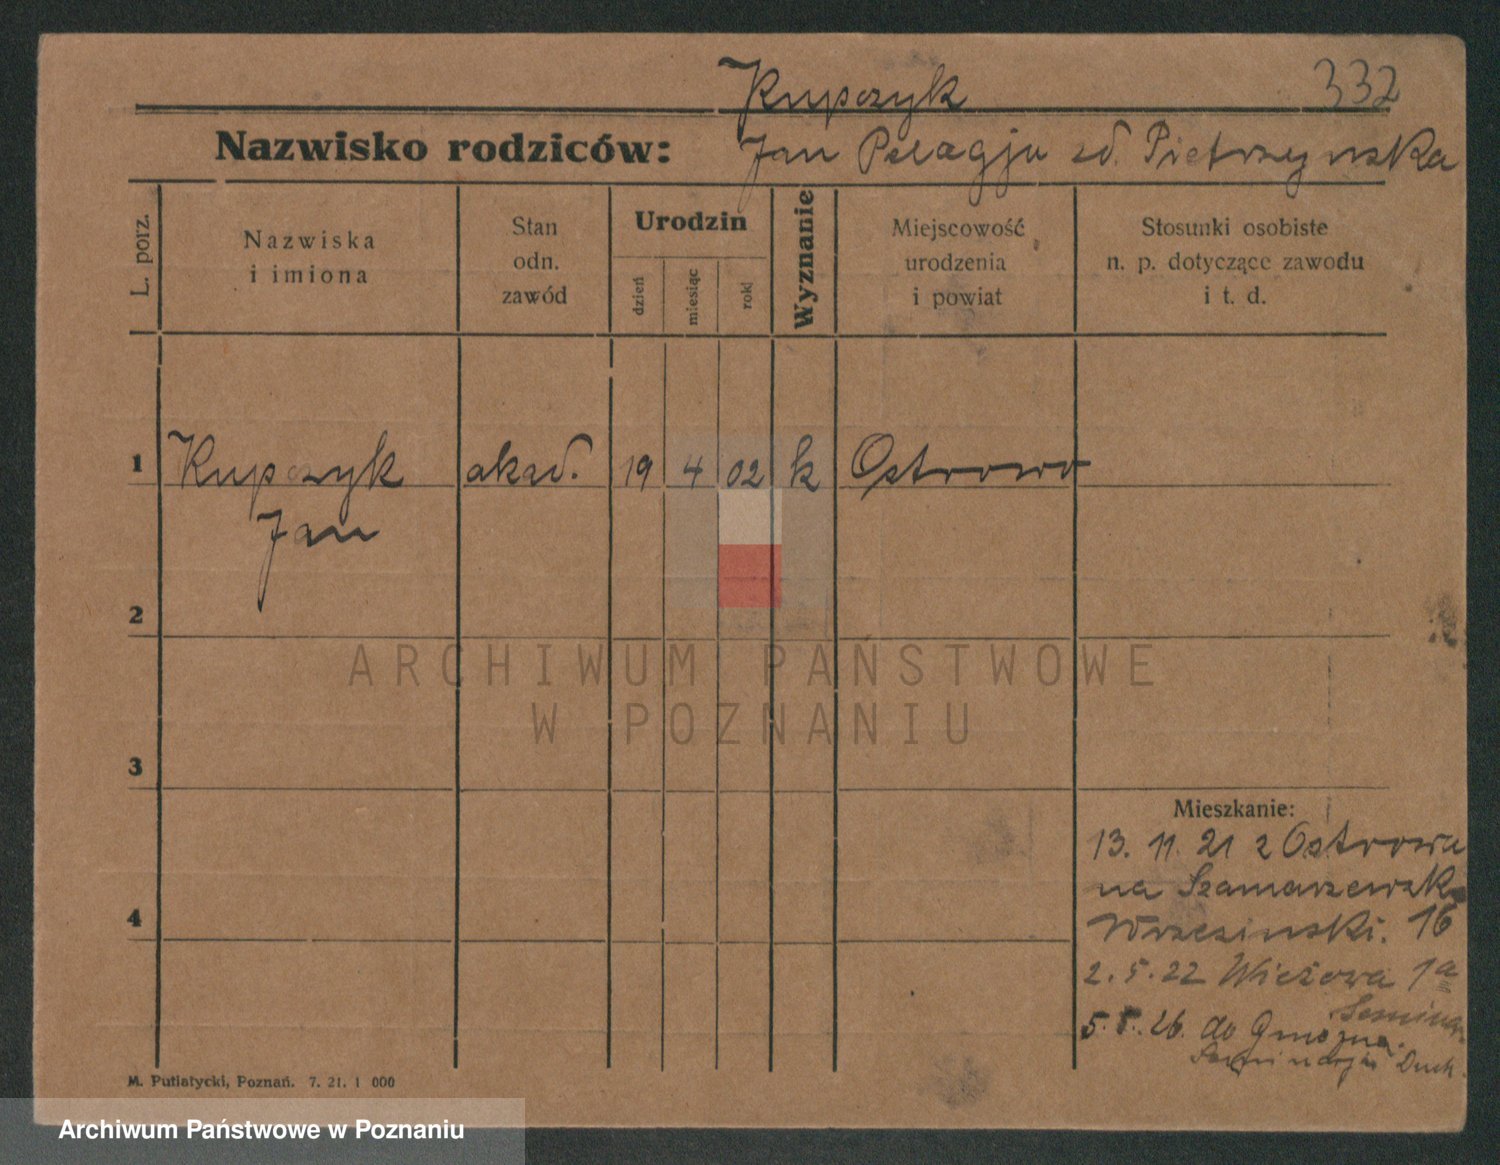 Kupczyk 332
Nazwisko rodziców: Jan Pelagja zd. Pietrzynska
L. porz.
Nazwiska
i imiona
Stan
odn.
zawód
Urodzin
dzień
miesiąc
rok
Wyznanie
Miejscowość
urodzenia
i powiat
Stosunki osobiste
n. p. dotyczące zawodu
i t. d.
1 Kupczyk akad. 19 4 02 k Ostrowo
Jan
2
3
4
ARCHIWUM PAŃSTWOWE
W POZNANIU
Mieszkanie:
13. 11 21 z Ostrowa
na Szamarzewsk
Wrzesinski. 16
2. 5. 22 Wieżowa 1a
Semina
5. 26. do Gniezna.
Duch.
M. Putiatycki, Poznań. 7. 21. 1 000
Archiwum Państwowe w Poznaniu